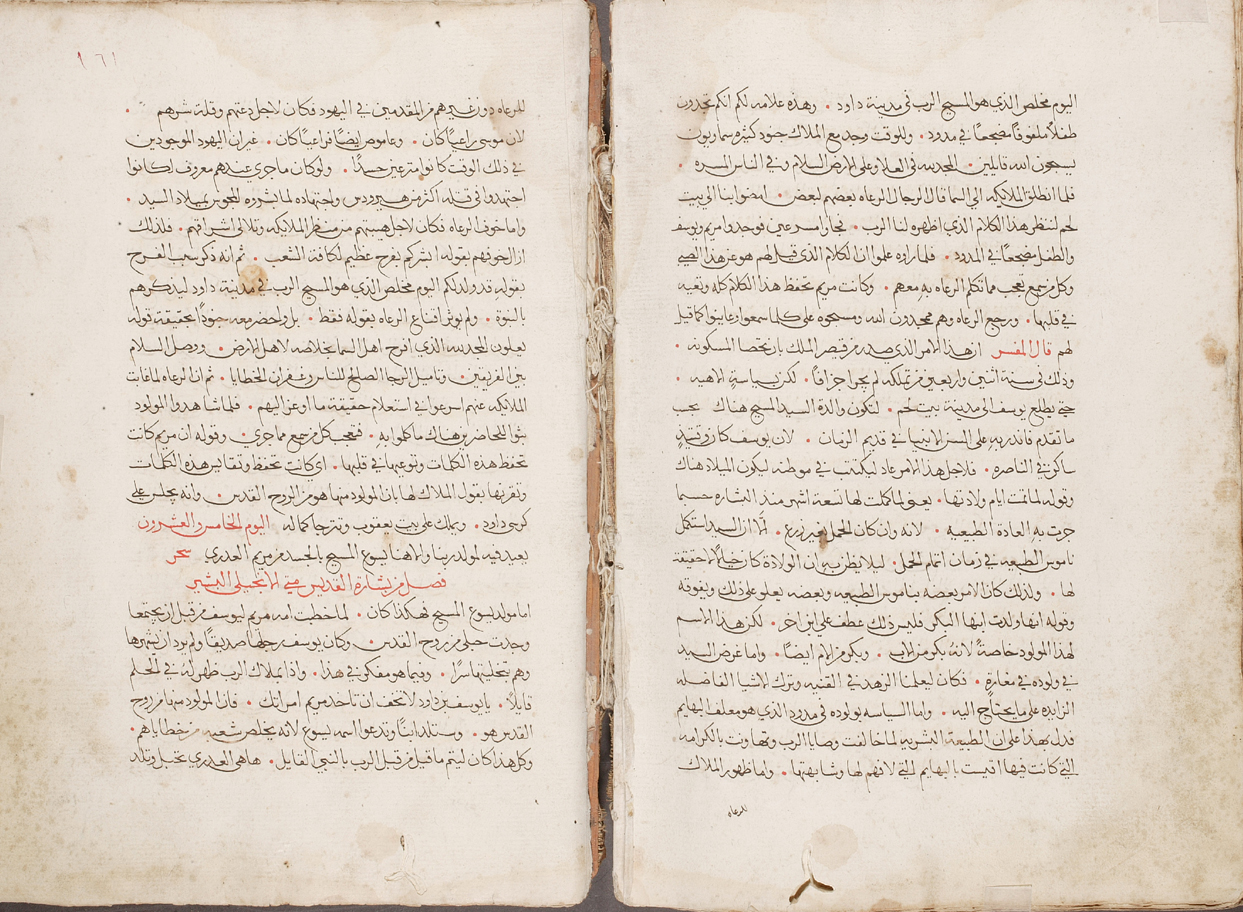 اليوم مخلص الذي هو المسيح الرب في مدينة داود • وهذه علامه لكم انكم تجدون
طفلاً ملفوفًا مضجعًا في مدود • وللوقت وجد مع الملاك جنود كثيره سماويون
يسبحون الله قايلين • المجد لله في العلا وعلى الارض السلام وفي الناس المسره •
فلما انطلق الملايكه الى السما قال الرجال الرعاه بعضهم لبعض • امضوا بنا الى بيت
لحم لننظر هذا الكلام الذي اظهره لنا الرب • فجاوا مسرعين فوجدوا مريم ويوسف
والطفل مضجعًا في المدود • فلما راوه علموا ان الكلام الذي قيل لهم هو عن هذا الصبي
وكل من سمع تعجب مما تكلم الرعاه به معهم • وكانت مريم تحفظ هذا الكلام كله وتعيه
في قلبها • ورجع الرعاه وهم يمجدون الله ويسبحوه على كلما سمعوا وعاينوا كما قيل
لهم قال المفسر ان هذا الامر الذي صدر من قيصر الملك بان تحصا المسكونه •
وذلك في سنة اثنين واربعين من تملكه لم يجر جزافًا • لكن بسياسةٍ الاهيه •
حتى يطلع يوسف الى مدينة بيت لحم • لتكون والدة السيد المسيح هناك بحسب
ما تقدم فانذر به على السن الانبيا في قديم الزمان • لان يوسف كان وقتيذٍ
ساكن في الناصره • فلاجل هذا الامر عاد ليكتتب في موطنه ليكون الميلاد هناك
وقوله لما تمت ايام ولادتها • يعني لما كملت لها تسعة اشهر منذ البشاره حسبما
جرت به العادة الطبيعيه • لانه وان كان الحمل بغير زرع • الا ان السيد استكمل
ناموس الطبيعه في زمان اتمام الحمل • ليلا يظن به ان الولادة كان خيالاً لا حقيقة
لها • ولذلك كان الامر بعضه بناموس الطبيعه وبعضه يعلو على ذلك ويفوقه
وقوله انها ولدت ابنها البكر فليس ذلك عطف على ابن اخر • لكن هذا الاسم
لهذا المولود خاصةً لانه بكر من الاب • وبكر من الام ايضًا • واما غرض السيد
في ولوده في مغارةٍ • فكان ليعلمنا الزهد في القنيه وترك الاشيا الفاضله
الزايده على ما يحتاج اليه • واما السياسه بولوده في مدود الذي هو معلف البهايم
فدل بهذا على ان الطبيعة البشريه لما خالفت وصايا الرب وتهاونت بالكرامه
التي كانت فيها اقيست بالبهايم التي لا فهم لها وشابهتها • واما ظهور الملاك
للرعاه
١٦١
للرعاه دون غيرهم من المقدمين في اليهود فكان لاجل دعتهم وقلة شرهم •
لان موسى راعيًا كان • وعاموص ايضًا فراعيًا كان • غير ان اليهود الموجودين
في ذلك الوقت كانوا متوعرين حسدًا • ولو كان ما جرى عندهم معروف لكانوا
اجتهدوا في قتله اكثر من هيرودس واجتهاده لما بشوره المجوس بميلاد السيد •
واما خوف الرعاه فكان لاجل هيبتهم من منظر الملايكه وتلالى اشراقهم • فلذلك
ازال خوفهم بقوله ابشركم بفرح عظيم لكافة الشعب • ثم انه ذكر سبب الفرح
بقوله قد ولد لكم اليوم مخلص الذي هو المسيح الرب في مدينة داود ليذكرهم
بالنبوة • ولم يوثر اقناع الرعاه بقوله فقط • بل واحضر معه جنودًا بحقيقة قوله
يعلون المجد لله الذي افرح اهل السما بخلاصه لاهل الارض • ووصل السلام
بين الفريقين • وتاميل الرجا الصالح للناس وغفران الخطايا • ثم ان الرعاه لما غابت
الملايكه عنهم اسرعوا في استعلام حقيقة ما اوعز اليهم • فلما شاهدوا المولود
بثوا للحاضرين هناك ما كلموا به • فتعجب كل من سمع مما جرى • وقوله ان مريم كانت
تحفظ هذه الكلمات وتوعيها في قلبها • اي كانت تحفظ وتقايس هذه الكلمات
وتقرنها بقول الملاك لها بان المولود منها هو من الروح القدس • وانه يجلس على
كرسي داود • ويملك على بيت يعقوب وتترجا كماله اليوم الخامس والعشرون
يعيد فيه لمولد ربنا والاهنا يسوع المسيح بالجسد من مريم العذري سحر
فصل من بشارة القديس متى الانجيلي البشير
اما مولد يسوع المسيح فهكذا كان • لما خطبت امه مريم ليوسف من قبل ان يجتمعا
وجدت حبلى من روح القدس • وكان يوسف رجلها صديقًا ولم يود ان يشهرها
وهم بتخليتها سرًا • وفيما هو مفكر في هذا • واذا بملاك الرب ظهر له في الحلم
قايلاً • يا يوسف بن داود لا تخف ان تاخذ مريم امراتك • فان المولود منها من روح
القدس هو • وستلد ابنًا وتدعو اسمه يسوع لانه يخلص شعبه من خطاياهم •
وكل هذا كان ليتم ما قيل من قبل الرب بالنبي القايل • ها هي العذري تحبل وتلد